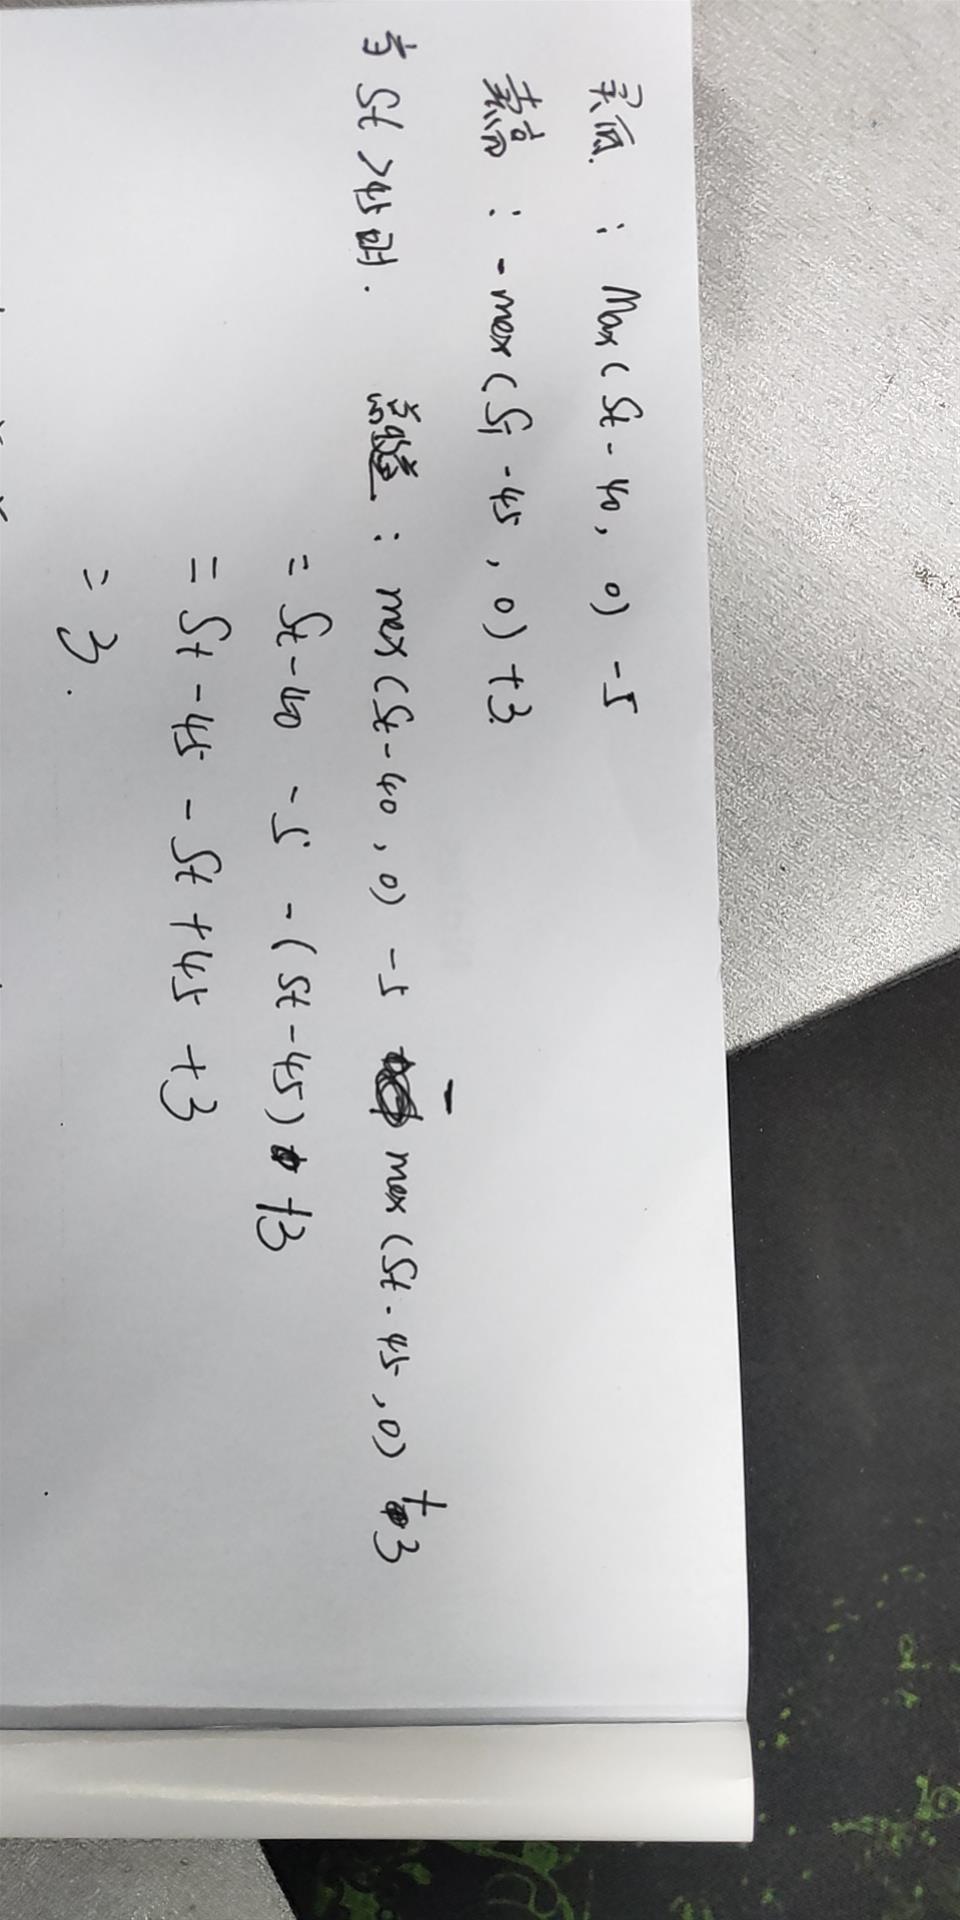 买低 : Max ( St - 40, 0) -5
卖高 : - max ( St - 45, 0) +3
当 St >45时. : max (St - 40, 0) -5 - max (St - 45, 0) +3
= St - 40 -5 - ( St - 45) +3
= St - 45 - St + 45 + 3
= 3.